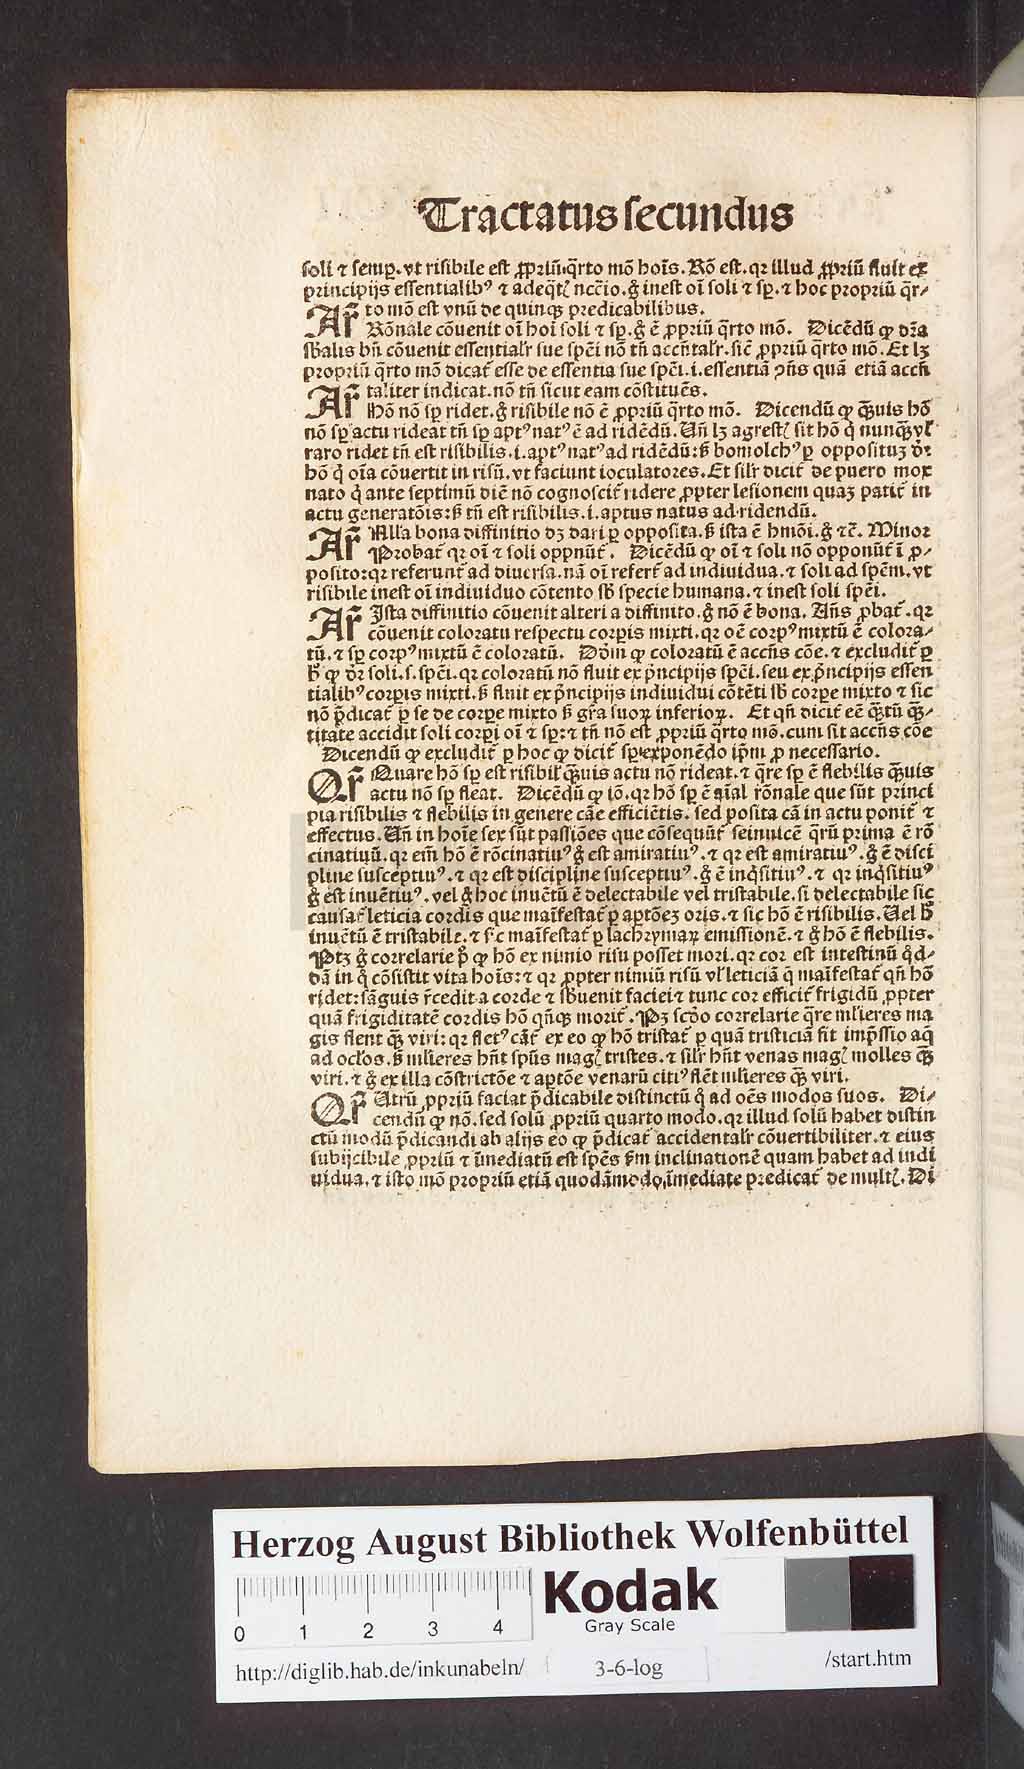 Tractatus secundus
soli ⁊ semꝑ. vt risibile est ꝓpriū q̄rto mō hoīs. Rō est. qꝛ illud ꝓpriū fluit ex
principijs essentialibꝰ ⁊ adeq̄tꝭ nccīo. g̊ inest oī soli ⁊ sꝑ. ⁊ hoc propriū q̄r⸗
to mō est vnū de quinqꝫ predicabilibus.
Ar̄ Rōnale cōuenit oī hoī soli ⁊ sꝑ. g̊ ē ꝓpriū q̄rto mō. Dicēdū ꝙ dr̄a
sb̄alis bn̄ cōuenit essentialr̄ sue spēi nō tn̄ accn̄talr̄. sic̄ ꝓpriū q̄rto mō. Et lꝫ
propriū q̄rto mō dicat̄ esse de essentia sue spēi. i. essentiā ꝯn̄s quā etiā accn̄
taliter indicat. nō tn̄ sicut eam cōstituēs.
Ar̄ Hō nō sꝑ ridet. g̊ risibile nō ē ꝓpriū q̄rto mō. Dicendū ꝙ q̄ꝫuis hō
nō sꝑ actu rideat tn̄ sꝑ aptꝰ natꝰ ē ad ridēdū. Un̄ lꝫ agrestꝭ sit hō q̇ nunq̄ꝫ vl̄
raro ridet tn̄ est risibilis. i. aptꝰ natꝰ ad ridēdū: s̄ bomolchꝰ ꝑ oppositum dr̄
hō q̇ oīa cōuertit in risū. vt faciunt ioculatores. Et silr̄ dicit̄ de puero mox
nato q̇ ante septimū diē nō cognoscit̄ ridere ꝓpter lesionem quaꝫ patit̄ in
actu generatōis: s̄ tn̄ est risibilis. i. aptus natus ad ridendū.
Ar̄ Nulla bona diffinitio dꝫ dari ꝑ opposita. s̄ ista ē hmōi. g̊ ⁊c̄. Minor
Probat̄ qꝛ oī ⁊ soli oppnūt̄. Dicēdū ꝙ oī ⁊ soli nō opponūt̄ ī ꝓ⸗
posito: qꝛ referunt̄ ad diuersa. nā oī refert̄ ad indiuidua. ⁊ soli ad spēm. vt
risibile inest oī indiuiduo cōtento sb̄ specie humana. ⁊ inest soli spēi.
Ar̄ Ista diffinitio cōuenit alteri a diffinito. g̊ nō ē bona. Ans̄ ꝓbat̄. qꝛ
cōuenit coloratu respectu corꝑis mixti. qꝛ oē corpꝰ mixtū ē colora⸗
tū. ⁊ sꝑ corpꝰ mixtū ē coloratū. Dōm ꝙ coloratū ē accn̄s cōe. ⁊ excludit̄ ꝑ
h̄ ꝙ dr̄ soli. s. spēi. qꝛ coloratū nō fluit ex pn̄cipijs spēi. seu ex pn̄cipijs essen
tialibꝰ corꝑis mixti. s̄ fluit ex pn̄cipijs indiuidui cōtēti sb̄ corꝑe mixto ⁊ sic
nō p̄dicat̄ ꝑ se de corꝑe mixto s̄ gr̄a suoꝝ inferioꝝ. Et qn̄ dicit̄ eē q̄ꝫtū q̄ꝫ⸗
titate accidit soli corꝑi oī ⁊ sꝑ: ⁊ tn̄ nō est ꝓpriū q̄rto mō. cum sit accn̄s cōe
Dicendū ꝙ excludit̄ ꝑ hoc ꝙ dicit̄ sꝑ exponēdo ip̄m ꝓ necessario.
Qr̄ Quare hō sꝑ est risibil̄ q̄ꝫuis actu nō rideat. ⁊ q̄re sꝑ ē flebilis q̄ꝫuis
actu nō sꝑ fleat. Dicēdū ꝙ iō. qꝛ hō sꝑ ē aīal rōnale que sūt princi
pia risibilis ⁊ flebilis in genere cāe efficiētis: sed posita cā in actu ponit̄ ⁊
effectus. Un̄ in hoīe sex sūt passiōes que cōsequūt̄ seinuicē q̄rū prima ē rō
cinatiuū. qꝛ eīn hō ē rōcinatiuꝰ g̊ est amiratiuꝰ. ⁊ qꝛ est amiratiuꝰ. g̊ ē disci
pline susceptiuꝰ. ⁊ qꝛ est discipline susceptiuꝰ. g̊ ē inq̇sitiuꝰ. ⁊ qꝛ inq̇sitiuꝰ
g̊ est inuētiuꝰ. vel g̊ hoc inuētū ē delectabile vel tristabile. si delectabile sic
causat̄ leticia cordis que maīfestat̄ ꝑ aptōeꝫ oris. ⁊ sic hō ē risibilis. Uel h̄
inuētū ē tristabile. ⁊ sic maīfestat̄ ꝑ lachrymaꝝ emissionē. ⁊ g̊ hō ē flebilis.
Ptꝫ g̊ correlarie p̄ ꝙ hō ex nimio risu posset mori. qꝛ cor est intestinū q̊d⸗
dā in q̊ cōsistit vita hoīs: ⁊ qꝛ ꝓpter nimiū risū vl̄ leticiā q̄ maīfestat̄ qn̄ hō
ridet: sāguis r̄cedit a corde ⁊ sb̄uenit faciei ⁊ tunc cor efficit̄ frigidū ꝓpter
quā frigiditatē cordis hō qn̄qꝫ morit̄. Pꝫ scd̄o correlarie q̄re mlīeres ma
gis flent q̄ꝫ viri: qꝛ fletꝰ cāt̄ ex eo ꝙ hō tristat̄ ꝑ quā tristiciā fit imp̄ssio aq̄
ad oclos̄. s̄ mlīeres hn̄t spūs magꝭ tristes. ⁊ silr̄ hn̄t venas magꝭ molles q̄ꝫ
viri. ⁊ g̊ ex illa cōstrictōe ⁊ aptōe venarū citiꝰ flēt mlīeres q̄ꝫ viri.
Qr̄ Utrū ꝓpriū faciat p̄dicabile distinctū q̊ ad oēs modos suos. Di⸗
cendū ꝙ nō. sed solū ꝓpriū quarto modo. qꝛ illud solū habet distin
ctū modū p̄dicandi ab alijs eo ꝙ p̄dicat̄ accidentalr̄ cōuertibiliter. ⁊ eius
subijcibile ꝓpriū ⁊ īmediatū est spēs s̄m inclinationē quam habet ad indi
uidua. ⁊ isto mō propriū etiā quodāmodo īmediate predicat̄ de multꝭ. Di
Herzog August Bibliothek Wolfenbüttel
0 1 2 3 4
Kodak
Gray Scale
http://diglib.hab.de/inkunabeln/ 3-6-log /start.htm